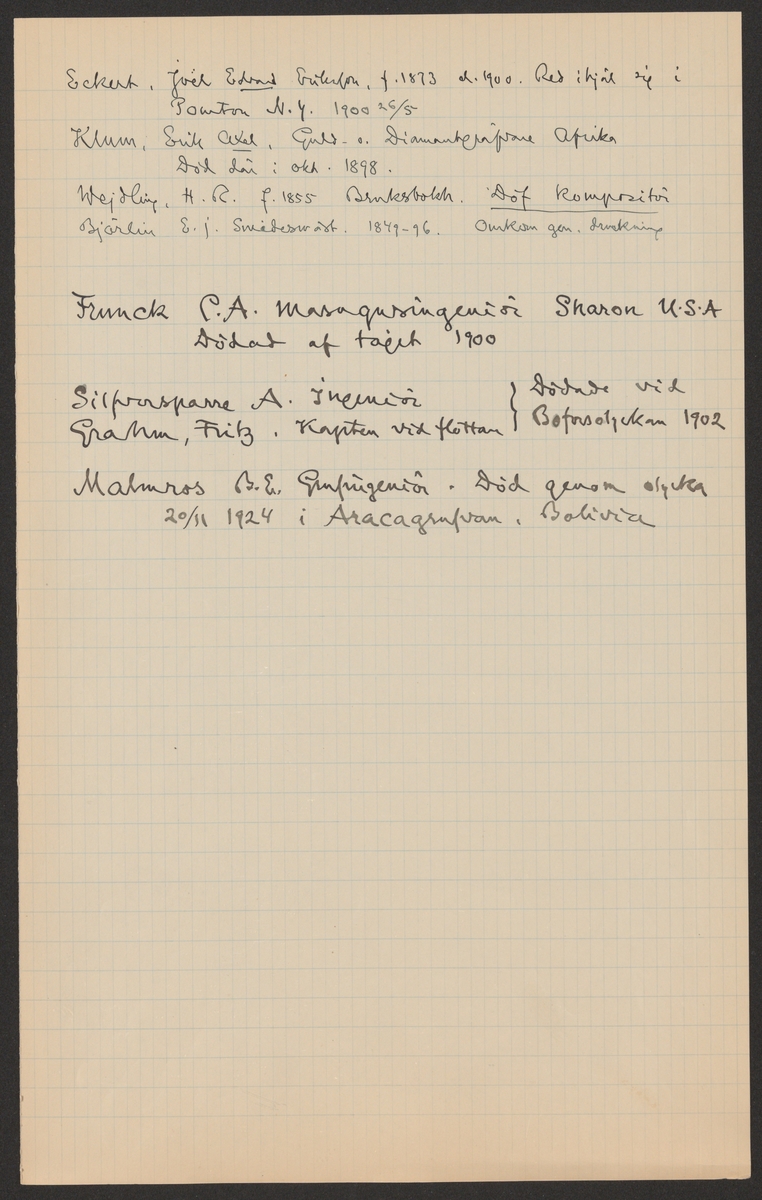 Eckert, Joël Edvard Erikson, f. 1873 d. 1900. Red ihjäl sig i
Pomton N.Y. 1900 26/5
Klum, Erik Axel, Guld- o. Diamantgräfvare Afrika
Död där i okt. 1898.
Wejdling, H. R. f. 1855 Bruksbokh. Döf kompositör
Björlin E. J. Smidesmäst. 1849-96. Omkom gen. drunkning
Frunck C.A. Masugnsingeniör Sharon U.S.A
Dödad af tåget 1900
Silfversparre A. Ingeniör } Dödade vid
Grahm, Fritz. Kapten vid flottan } Boforsolyckan 1902
Malmros B.E. Grufingeniör. Död genom olycka
20/11 1924 i Aracagrufvan, Bolivia